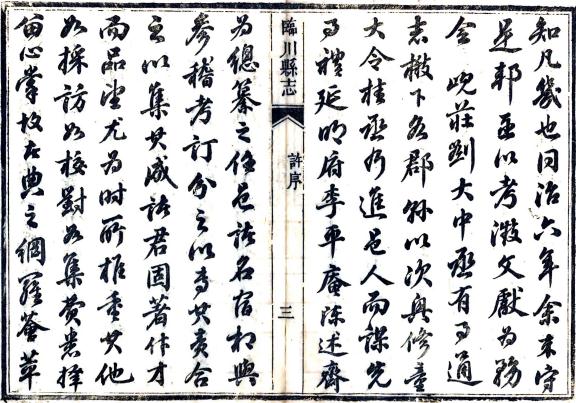 知凡幾也同治六年余来守
是邦亟以考澂文獻為務
會峴莊劉大中丞有事通
志檄下各郡縣以次興修童
大令桂丞乃進邑人而謀先
事禮延明府李平庵陳述齋
臨川縣志
許序
三
為總纂之任邑諸名宿相與
參稽考訂分之以專其責合
之以集其成諸君固著作才
而品望尤為時所推重其他
如採訪如校對如集費悉擇
留心掌故古典之網羅薈萃